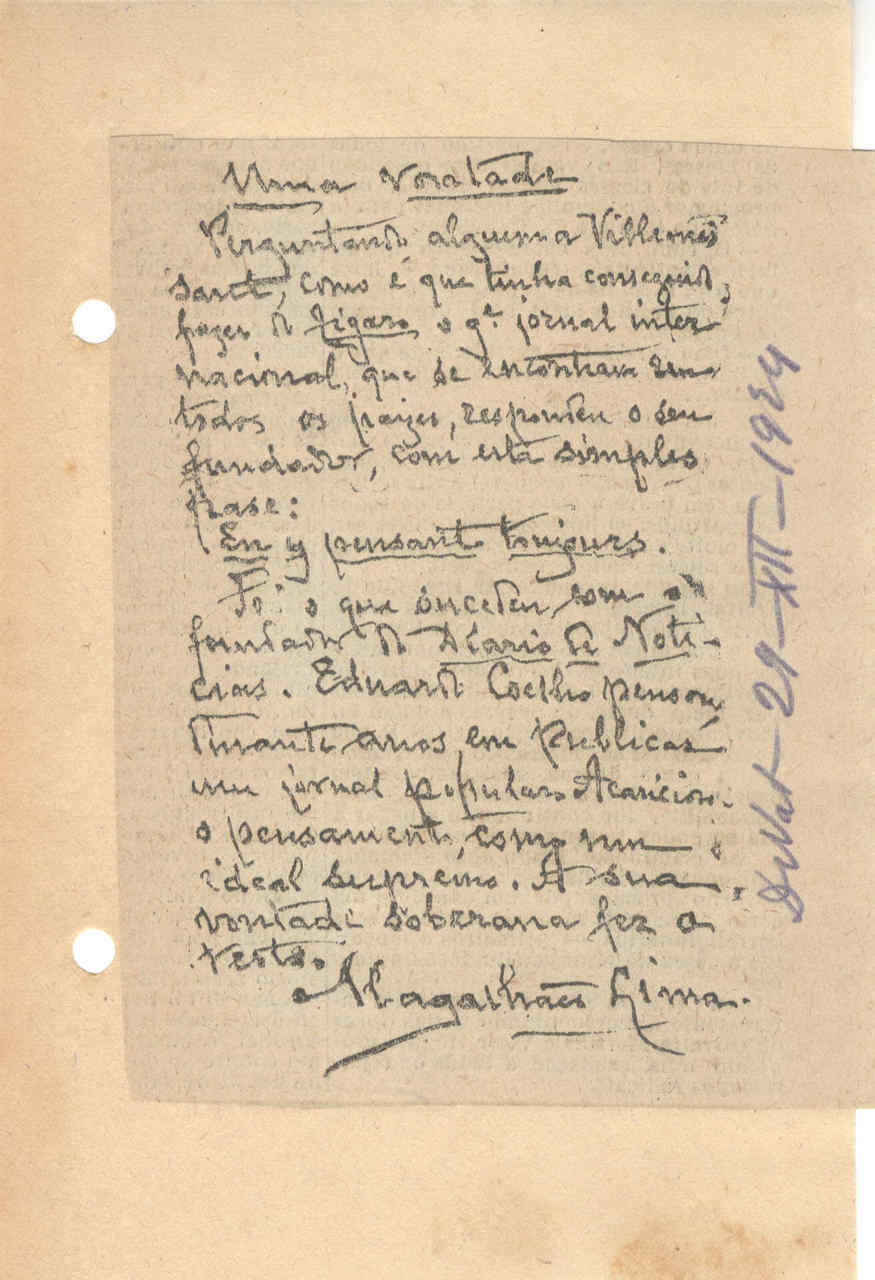 Uma vontade
Perguntando alguem a Villemes
sant, como é que tinha conseguido,
fazer do Figaro o gr. jornal inter
nacional, que se encontrava em
todos os paizes, respondeu o seu
fundador, com esta simples
frase:
En y pensant toujours.
Foi o que sucedeu com o
fundador do Diario de Noti-
cias. Eduardo Coelho pensou
durante anos em publicar
um jornal popular. Acariciou
o pensamento, como num
ideal supremo. A sua
vontade soberana fez o
resto.
Magalhães Lima.
29-XII-1924